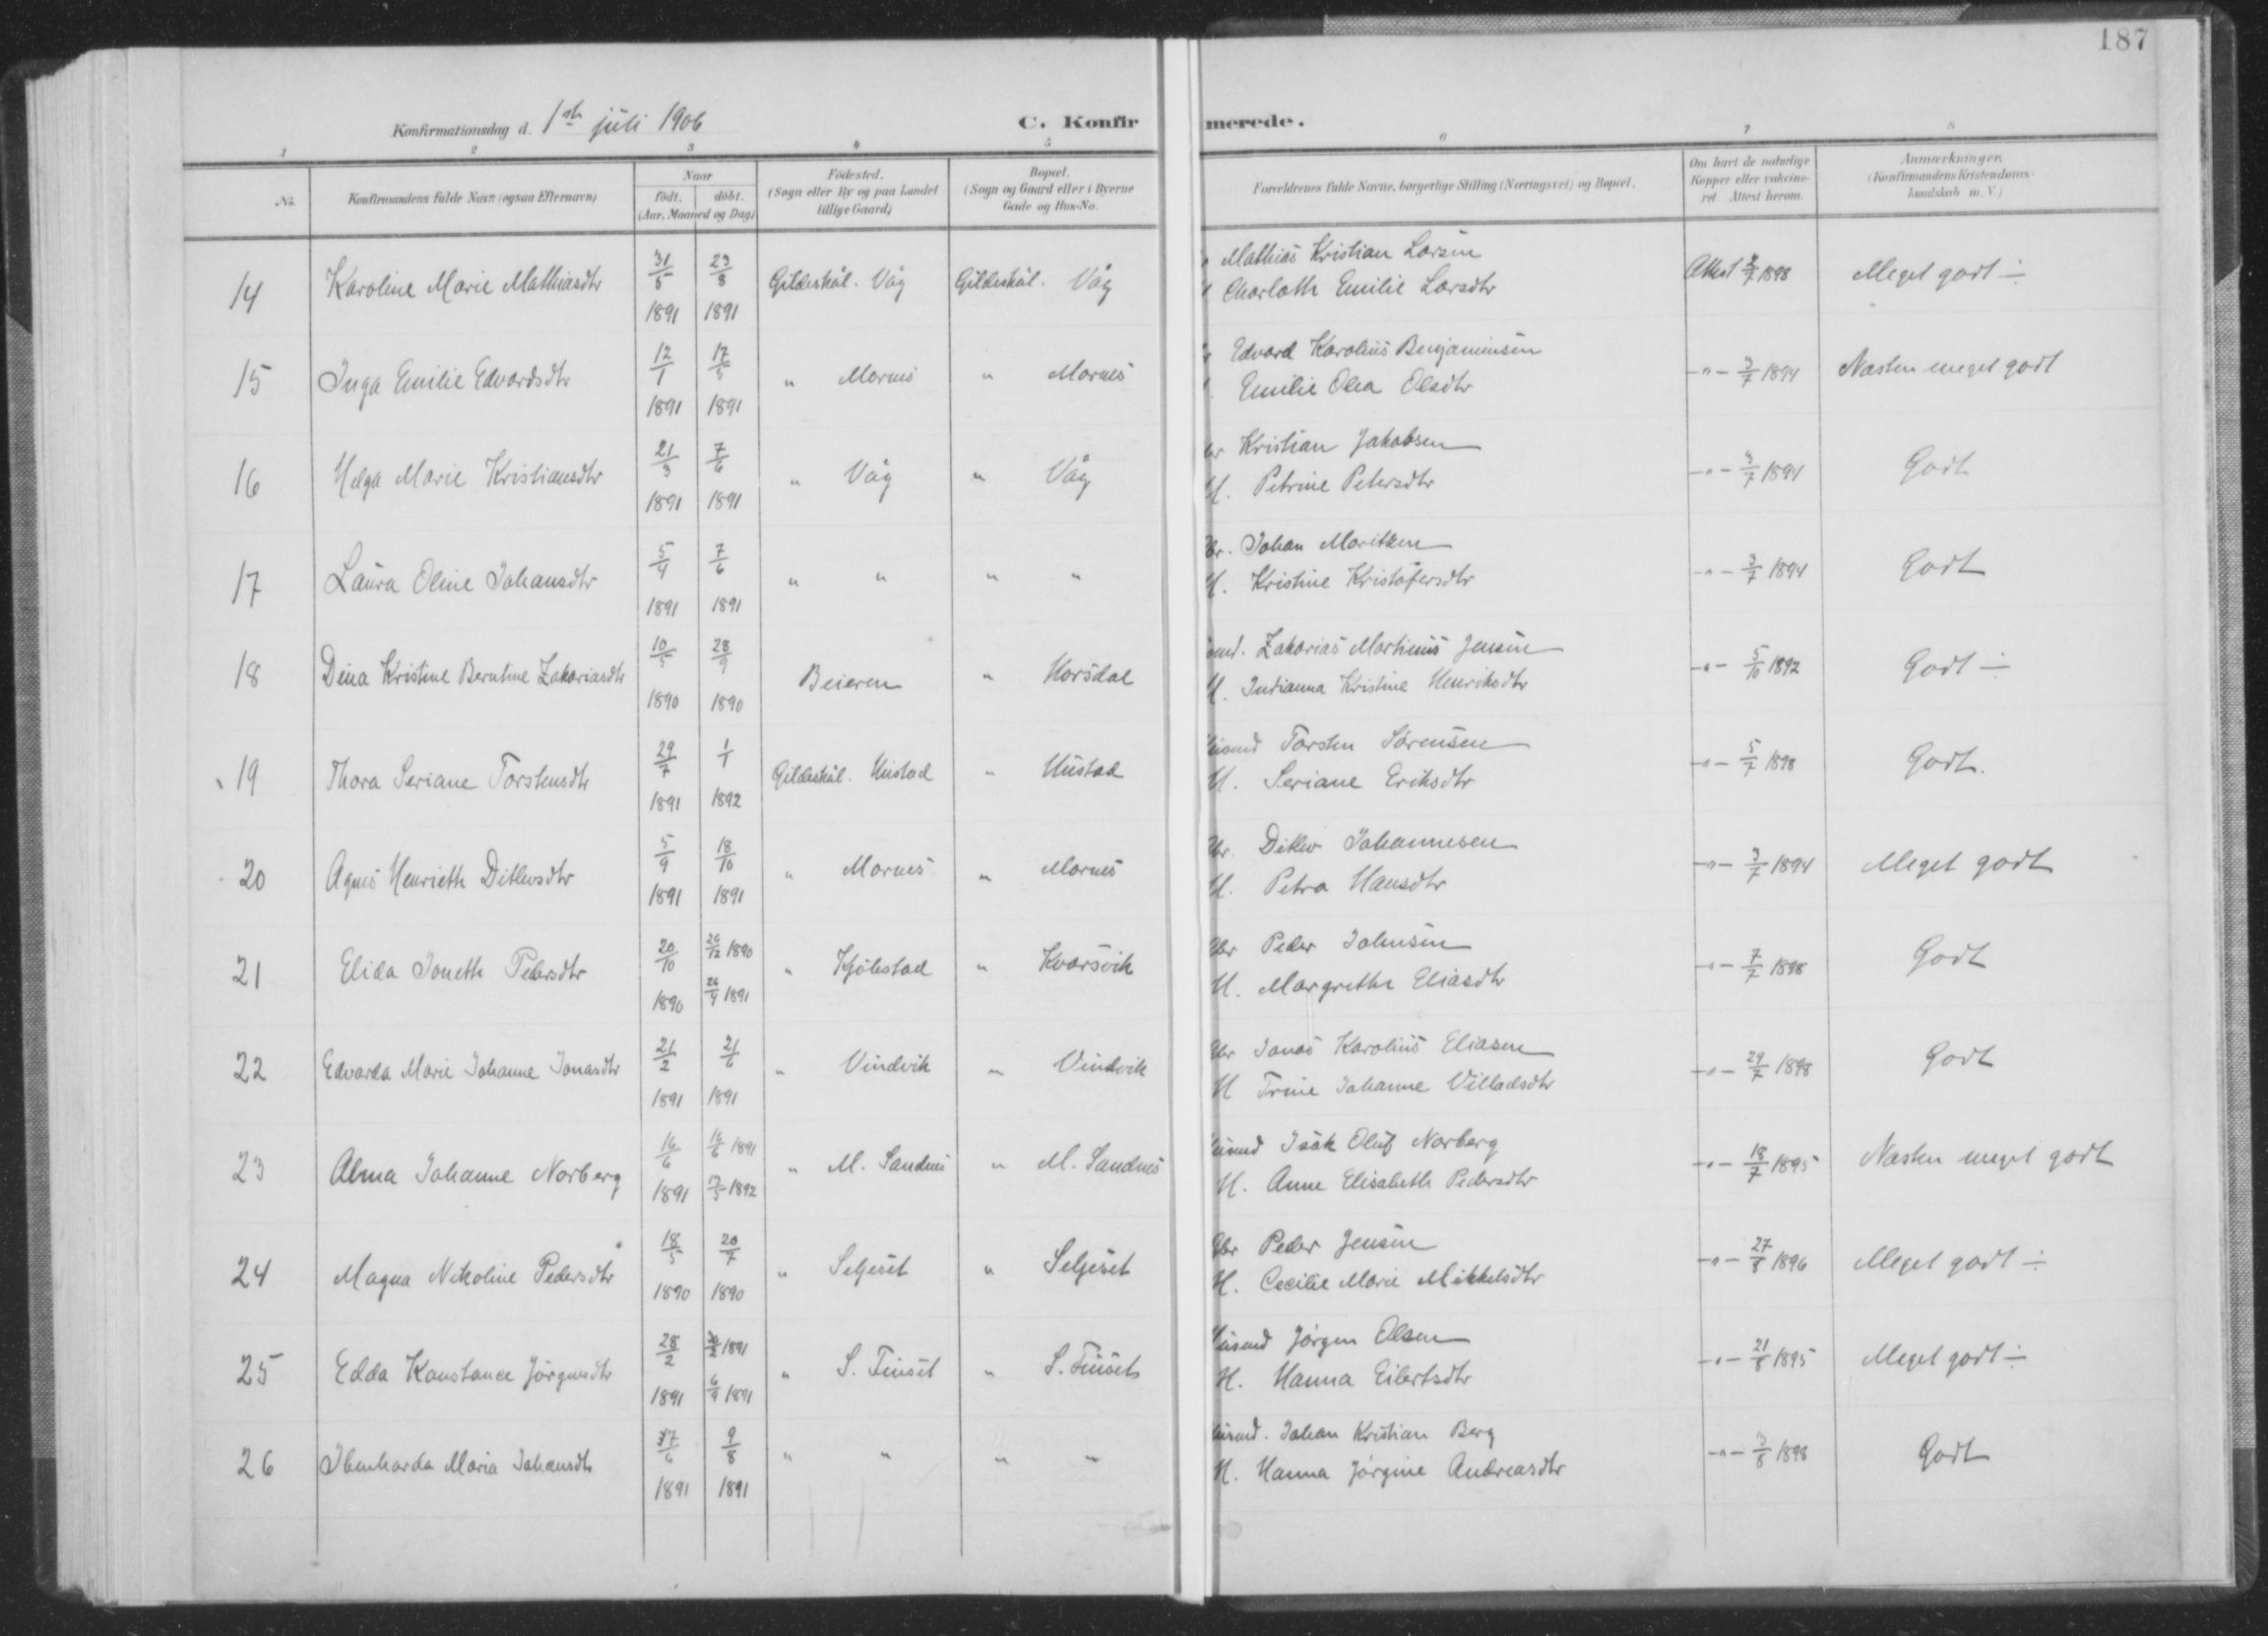 187
Konfirmationsdag d. 1ste juli 1906
C. Konfirmerede.
1 2 3 4 5 6 7 8
No. Konfirmandens fulde Navn (ogsaa Efternavn) Naar født. døbt. (Aar, Maaned og Dag) Fødested. (Sogn eller By og paa Landet tillige Gaard) Bopæl. (Sogn og Gaard eller i Byerne Gade og Hus-No. Forældrenes fulde Navne, borgerlige Stilling (Næringsvei) og Bopæl. Om havt de naturlige Kopper eller vakcineret. Attest herom. Anmærkninger. (Konfirmandens Kristendomskundskab m. V.)
14 Karoline Marie Mathiasdtr 31/5 1891 23/8 1891 Gildeskål. Våg Gildeskål. Våg Mathias Kristian Larsen
Charlotte Emilie Larsdtr Attest 1898 Meget godt ÷
15 Inga Emilie Edvardsdtr 12/1 1891 17/5 1891 " Mornes " Mornes Edvard Karolius Benjaminsen
Emilie Olea Olsdtr -"- 3/7 1894 Næsten meget godt
16 Helga Marie Kristiansdtr 21/3 1891 7/6 1891 " Våg " Våg Kristian Jakobsen
H. Petrine Petersdtr -"- 3/7 1894 Godt
17 Laura Oline Johansdtr 5/4 1891 7/6 1891 " " " " Gbr. Johan Moritzen
H. Kristine Kristofersdtr -"- 3/7 1894 Godt
18 Dina Kristine Berntine Zakariasdtr 10/5 1890 28/9 1890 Beieren " Horsdal Zakarias Martinus Jensen
H. Indianna Kristine Henriksdtr -"- 5/10 1892 Godt ÷
19 Thora Seriane Torstensdtr 29/7 1891 1/1 1892 Gildeskål. Hustad " Hustad Husmd Torsten Sørensen
H. Seriane Eriksdtr -"- 5/7 1898 Godt.
20 Agnes Henriette Ditlevsdtr 5/9 1891 18/10 1891 " Mornes " Mornes Gbr. Ditlev Johannesen
H. Petra Hansdtr -"- 3/7 1894 Meget godt
21 Elida Jonette Pedersdtr 20/10 1890 26/12 1890 26/4 1891 " Kjølstad " Kvarsvik Gbr Peder Johnsen
H. Margrethe Eliasdtr -"- 7/7 1898 Godt
22 Edvarda Marie Johanne Jonasdtr 21/2 1891 21/6 1891 " Vindvik " Vindvik Gbr Jonas Karolius Eliasen
H Trine Johanne Villadsdtr -"- 29/7 1898 Godt
23 Alma Johanne Norberg 16/6 1891 16/6 1891 1892 " M. Sandnes " M. Sandnes Husmd Isak Oluf Norberg
H. Anne Elisabeth Pedersdtr -"- 18/7 1895 Næsten meget godt
24 Magna Nikoline Pedersdtr 18/5 1890 20/7 1890 " Seljeset " Seljeset Gbr Peder Jensen
H. Cecilie Marie Mikkelsdtr -"- 27/8 1896 Meget godt ÷
25 Edda Konstance Jørgensdtr 28/2 1891 1891 6/9 1891 " S. Finset " S. Finset Husmd Jørgen Olsen
H. Hanna Eilertsdtr -"- 21/8 1895 Meget godt ÷
26 Ibenharda Maria Johansdtr 1891 9/8 1891 " " " " Husmd. Johan Kristian Berg
H. Hanna Jørgine Andreasdtr -"- 1898 Godt